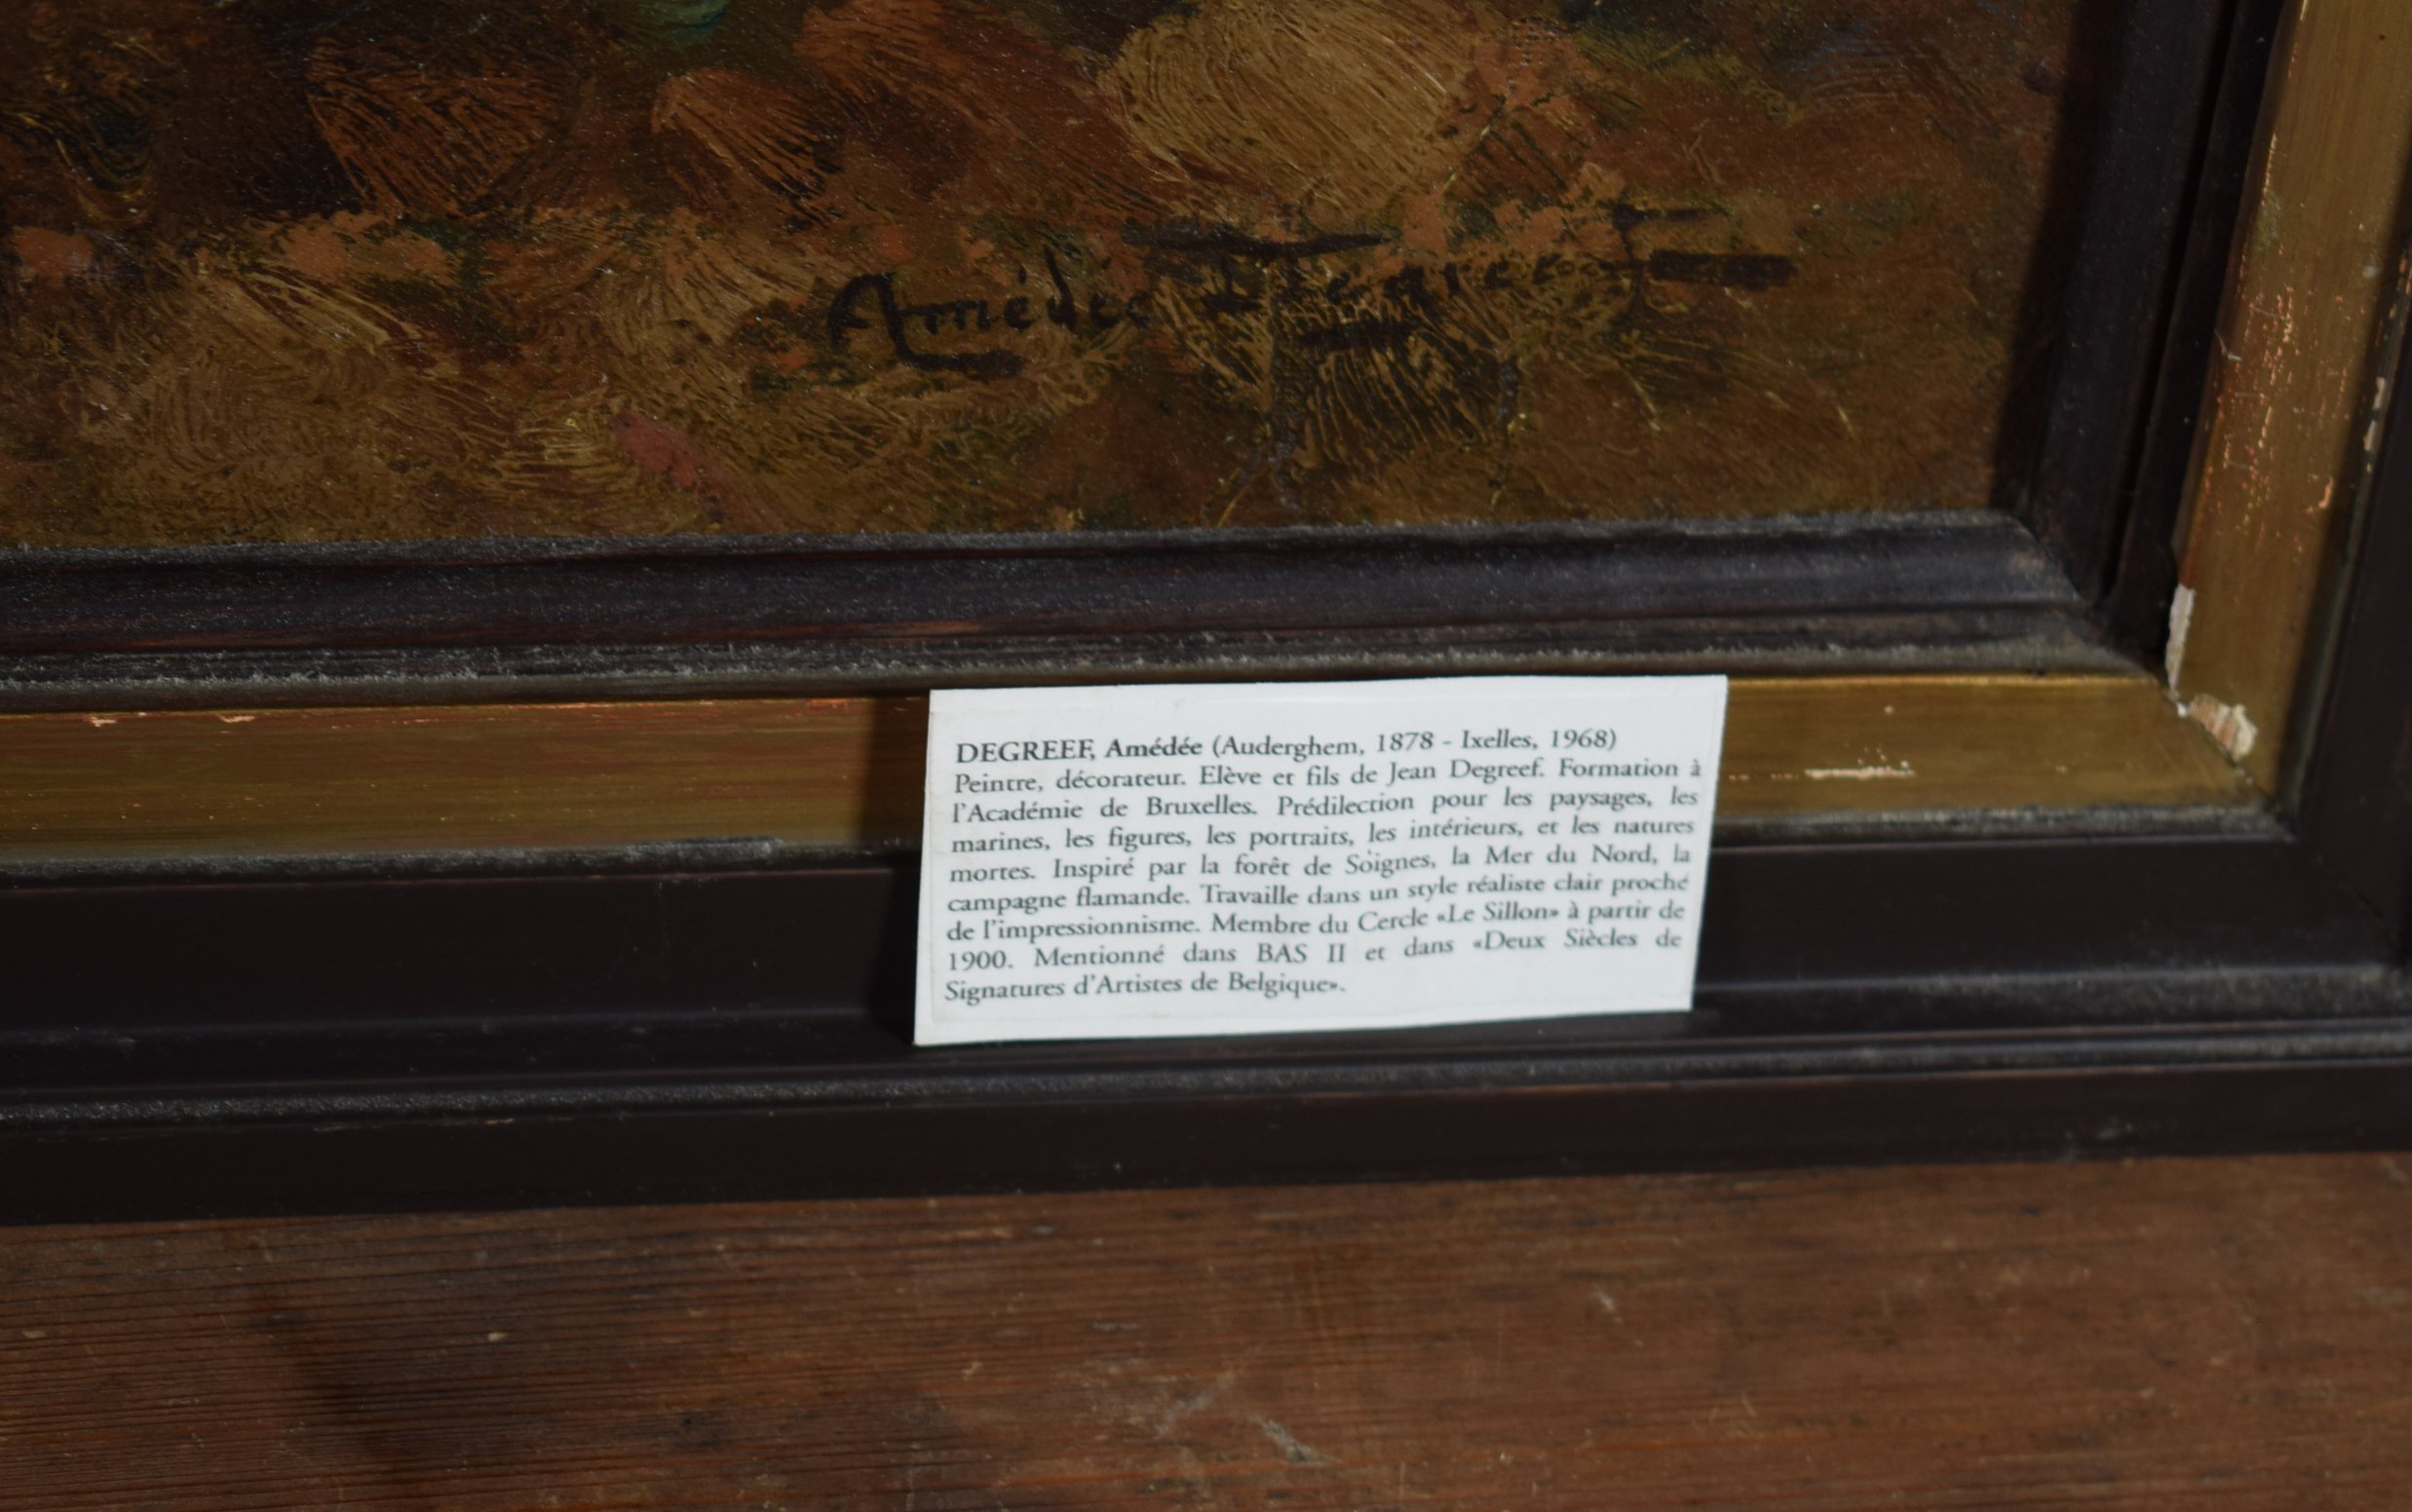 Amédée Degreef
DEGREEF, Amédée (Auderghem, 1878 - Ixelles, 1968)
Peintre, décorateur. Elève et fils de Jean Degreef. Formation à
l'Académie de Bruxelles. Prédilection pour les paysages, les
marines, les figures, les portraits, les intérieurs, et les natures
mortes. Inspiré par la forêt de Soignes, la Mer du Nord, la
campagne flamande. Travaille dans un style réaliste clair proche
de l'impressionnisme. Membre du Cercle «Le Sillon» à partir de
1900. Mentionné dans BAS II et dans «Deux Siècles de
Signatures d'Artistes de Belgique».